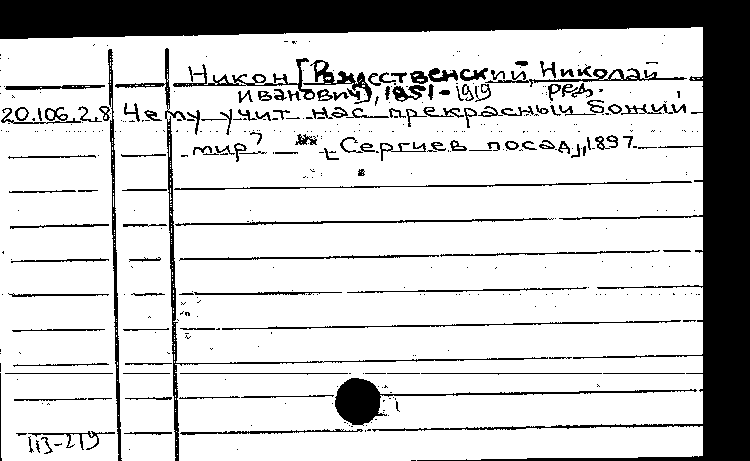 Никон [Рождественский, Николай
Иванович], 1851-1919 ред.
20.106.2.8 Чему учит нас прекрасный божий
мир? Сергиев посад, 1897
113-219